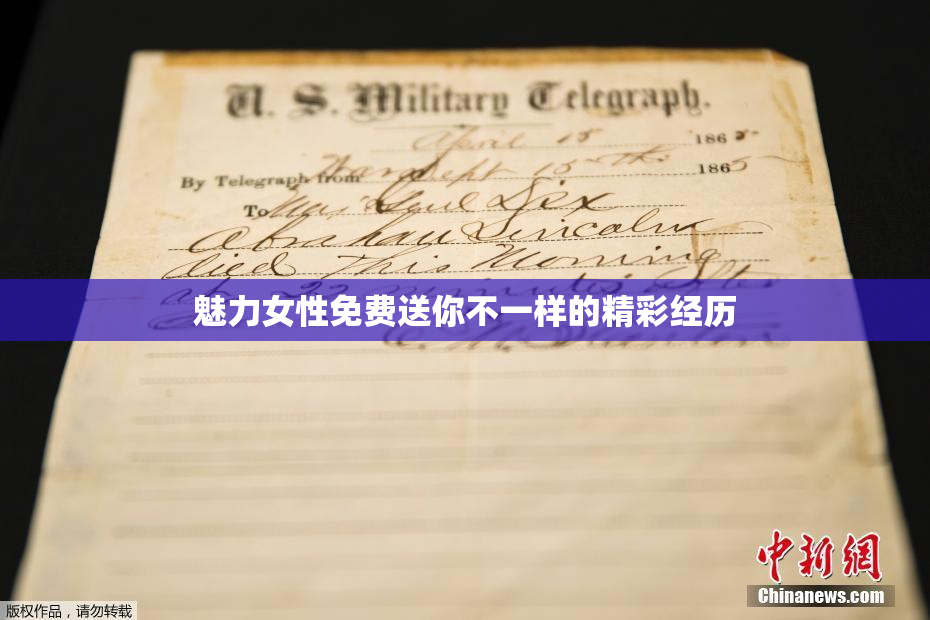 U. S. Military Telegraph.
April 15 1865
By Telegraph from War Dept 15th 1865
To Maj Genl Dix
Abraham Lincoln
died This Morning
at 22 minutes after
魅力女性免费送你不一样的精彩经历
E. M. Stanton
中新網
Chinanews.com
版权作品，请勿转载